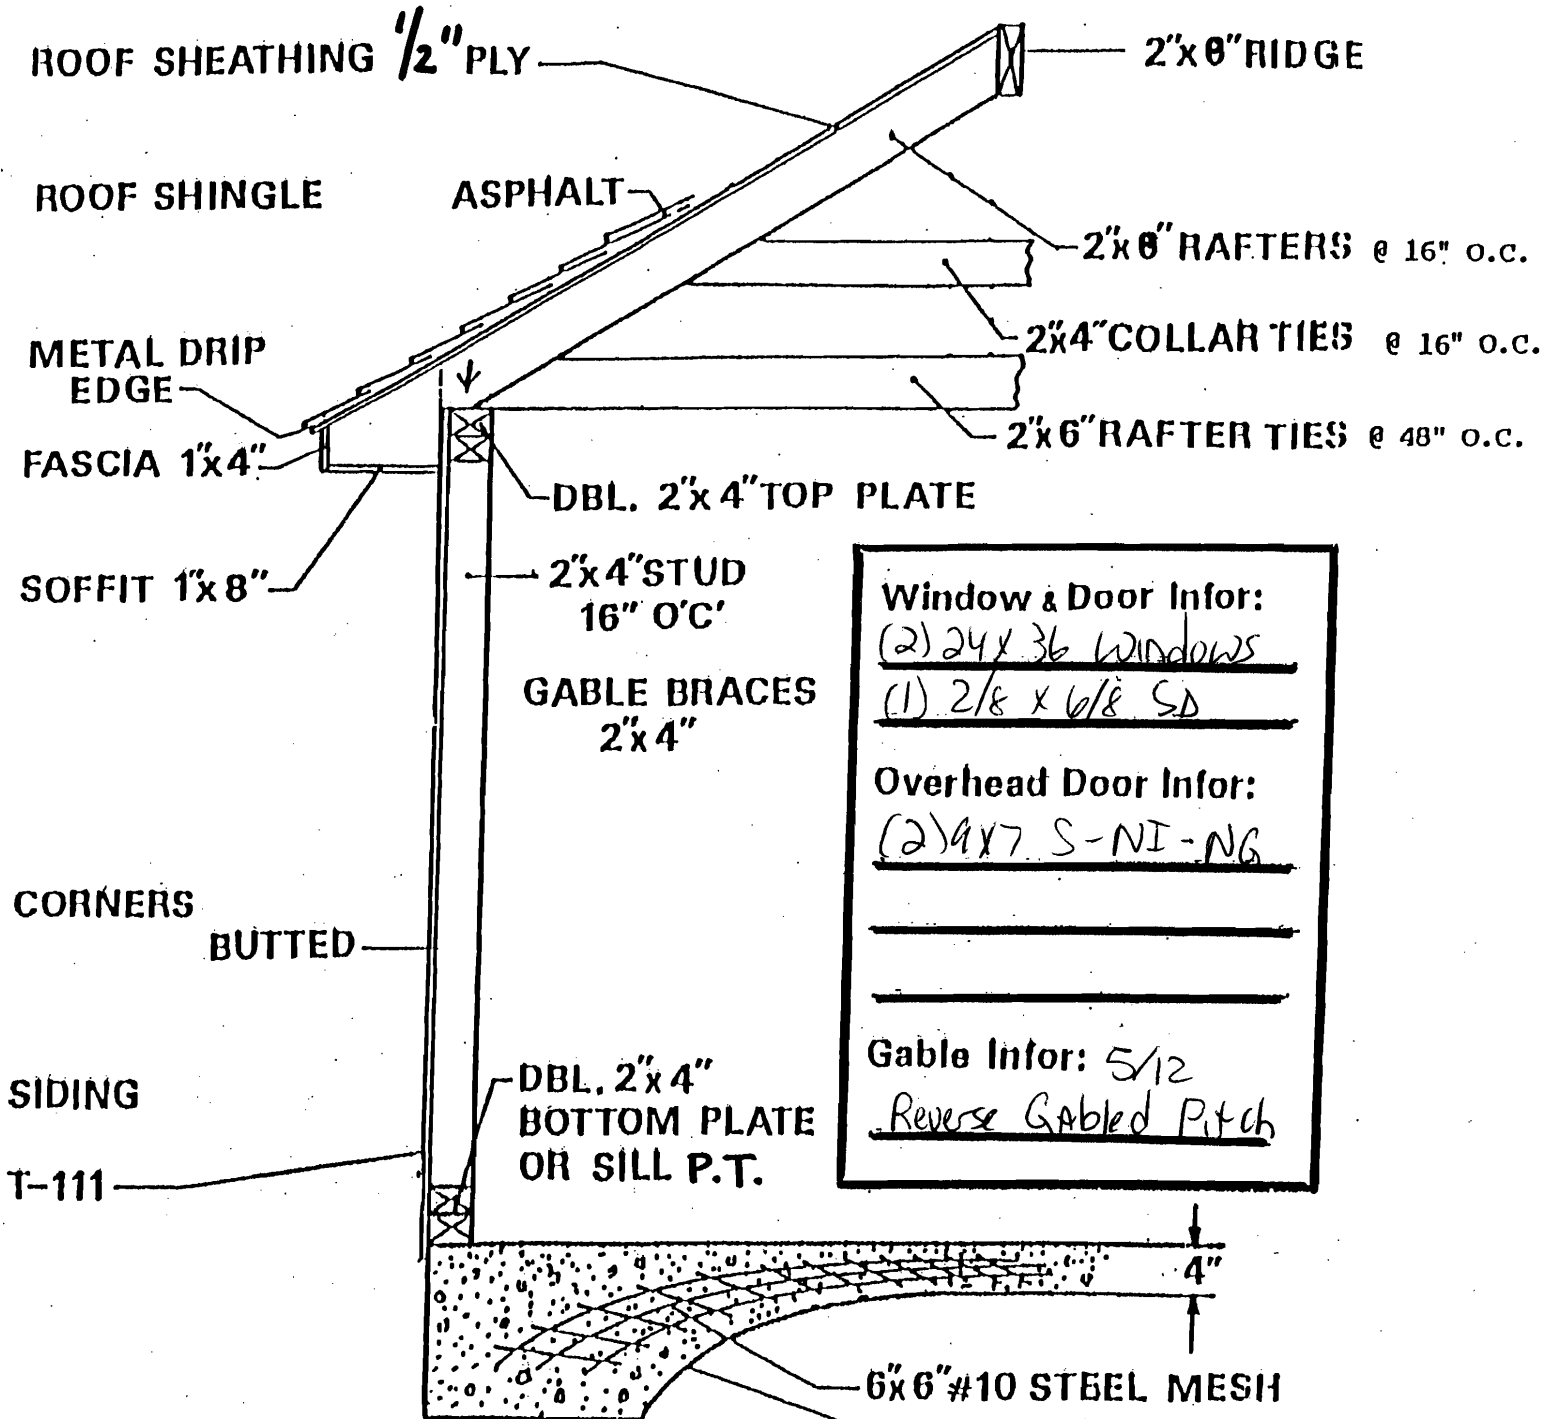 ROOF SHEATHING 1/2" PLY
2"x8" RIDGE
ROOF SHINGLE ASPHALT
2"x8" RAFTERS @ 16" O.C.
2"x4" COLLAR TIES @ 16" O.C.
METAL DRIP
EDGE
2"x6" RAFTER TIES @ 48" O.C.
FASCIA 1"x4"
DBL. 2"x4" TOP PLATE
SOFFIT 1"x8"
2"x4" STUD
16" O'C'
GABLE BRACES
2"x4"
Window & Door Infor:
(2) 24 x 36 Windows
(1) 2/8 x 6/8 SD
Overhead Door Infor:
(2) 9x7 S-NI-NG
Gable Infor: 5/12
Reverse Gabled Pitch
CORNERS
BUTTED
SIDING
T-111
DBL. 2"x4"
BOTTOM PLATE
OR SILL P.T.
4"
6"x6" #10 STEEL MESH